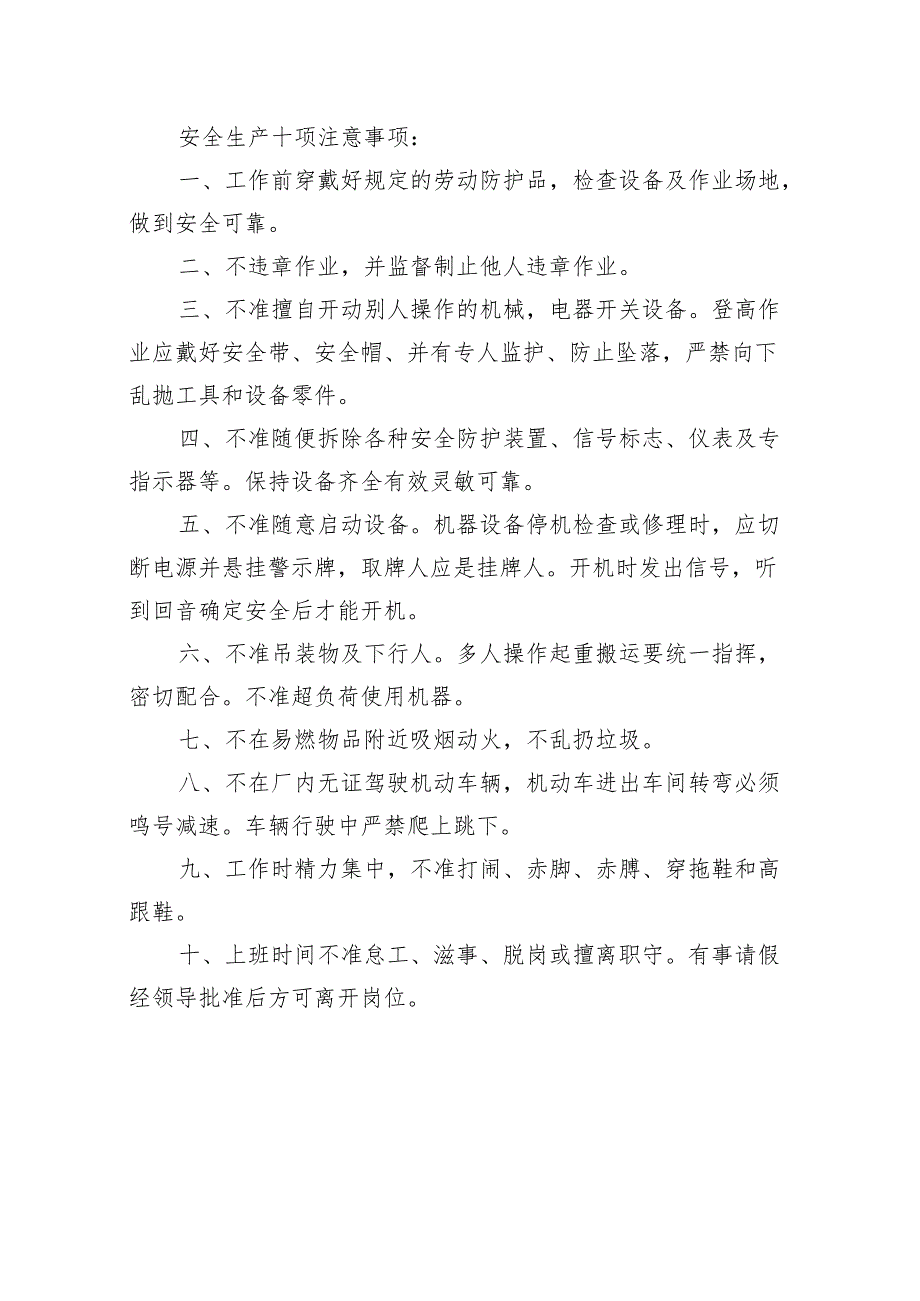 安全生产十项注意事项：
一、工作前穿戴好规定的劳动防护品，检查设备及作业场地，
做到安全可靠。
二、不违章作业，并监督制止他人违章作业。
三、不准擅自开动别人操作的机械，电器开关设备。登高作
业应戴好安全带、安全帽、并有专人监护、防止坠落，严禁向下
乱抛工具和设备零件。
四、不准随便拆除各种安全防护装置、信号标志、仪表及专
指示器等。保持设备齐全有效灵敏可靠。
五、不准随意启动设备。机器设备停机检查或修理时，应切
断电源并悬挂警示牌，取牌人应是挂牌人。开机时发出信号，听
到回音确定安全后才能开机。
六、不准吊装物及下行人。多人操作起重搬运要统一指挥，
密切配合。不准超负荷使用机器。
七、不在易燃物品附近吸烟动火，不乱扔垃圾。
八、不在厂内无证驾驶机动车辆，机动车进出车间转弯必须
鸣号减速。车辆行驶中严禁爬上跳下。
九、工作时精力集中，不准打闹、赤脚、赤膊、穿拖鞋和高
跟鞋。
十、上班时间不准怠工、滋事、脱岗或擅离职守。有事请假
经领导批准后方可离开岗位。